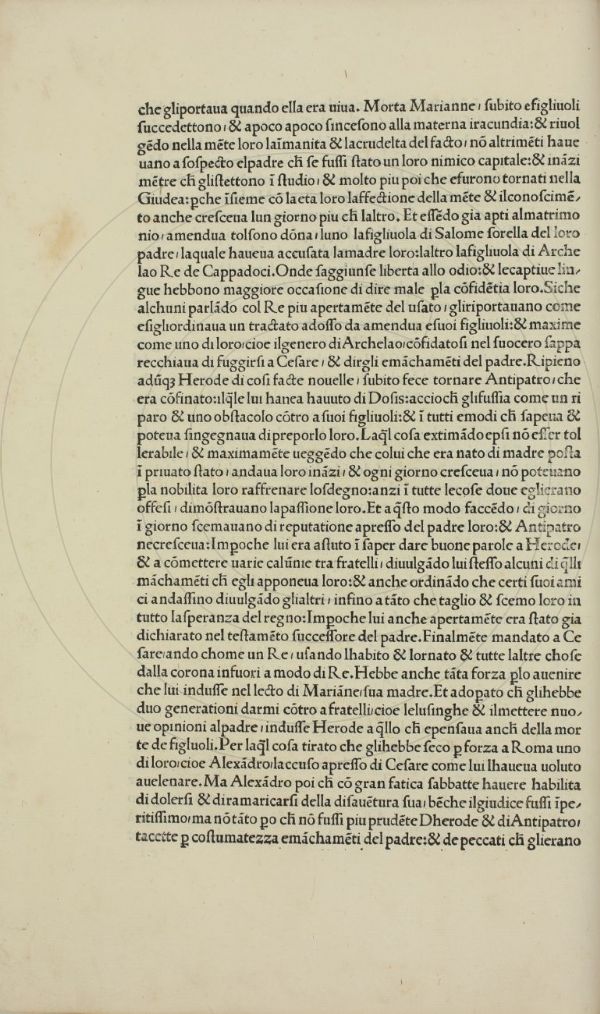 che gliportaua quando ella era uiua. Morta Marianne, subito efigliuoli
succedettono, & apoco apoco sincesono alla materna iracundia: & riuol
gẽdo nella mẽte loro laĩmanita & lacrudelta del facto, nõ altrimẽti haue
uano a sospecto elpadre ch̃ se fussi stato un loro nimico capitale: & inãzi
mẽtre ch̃ glistettono ĩ studio, & molto piu poi che efurono tornati nella
Giudea: ꝑche ĩsieme cõ laeta loro laffectione della mẽte & ilconoscimẽ/
to anche cresceua lun giorno piu ch̃ laltro. Et essẽdo gia apti almatrimo
nio, amendua tolsono dõna, luno lafigliuola di Salome sorella del loro
padre, laquale haueua accusata lamadre loro: laltro lafigliuola di Arche
lao Re de Cappadoci. Onde saggiunse liberta allo odio: & lecaptiue lin/
gue hebbono maggiore occasione di dire male ꝑla cõfidẽtia loro. Siche
alchuni parlãdo col Re piu apertamẽte del usato, gliriportauano come
esigliordinaua un tractato adosso da amendua esuoi figliuoli: & maxime
come uno di loro, cioe ilgenero di Archelao, cõfidatosi nel suocero sappa
recchiaua di fuggirsi a Cesare, & dirgli emãchamẽti del padre. Ripieno
adũqꝫ Herode di cosi facte nouelle, subito fece tornare Antipatro, che
era cõfinato: ilq̃le lui hanea hauuto di Dosis: accioch̃ glifussia come un ri
paro & uno obstacolo cõtro a suoi figliuoli: & ĩ tutti emodi ch̃ sapeua &
poteua singegnaua di preporlo loro. Laq̃l cosa extimãdo epsi nõ esser tol
lerabile, & maximamẽte ueggẽdo che colui che era nato di madre posta
ĩ priuato stato, andaua loro inãzi, & ogni giorno cresceua, nõ poteuano
ꝑla nobilita loro raffrenare losdegno: anzi ĩ tutte lecose doue eglierano
offesi, dimõstrauano lapassione loro. Et a q̃sto modo faccẽdo, di giorno
ĩ giorno scemauano di reputatione apresso del padre loro: & Antipatro
necresceua: Impoche lui era astuto ĩ saper dare buone parole a Herode,
& a cõmettere uarie calũnie tra fratelli, diuulgãdo lui stesso alcuni di q̃lli
mãchamẽti ch̃ egli apponeua loro: & anche ordinãdo che certi suoi ami
ci andassino diuulgãdo glialtri, infino a tãto che taglio & scemo loro in
tutto lasperanza del regno: Impoche lui anche apertamẽte era stato gia
dichiarato nel testamẽto successore del padre. Finalmẽte mandato a Ce
sare, ando chome un Re, usando lhabito & lornato & tutte laltre chose
dalla corona infuori a modo di Re. Hebbe anche tãta forza ꝑlo auenire
che lui indusse nel lecto di Mariãne, sua madre. Et adopato ch̃ glihebbe
duo generationi darmi cõtro a fratelli, cioe lelusinghe & ilmettere nuo/
ue opinioni alpadre, indusse Herode a q̃llo ch̃ epensaua anch̃ della mor
te de figluoli. Per laq̃l cosa tirato che glihebbe seco ꝑ forza a Roma uno
di loro, cioe Alexãdro, laccuso apresso di Cesare come lui lhaueua uoluto
auelenare. Ma Alexãdro poi ch̃ cõ gran fatica sabbatte hauere habilita
di dolersi & di ramaricarsi della disauẽtura sua, bẽche ilgiudice fussi ĩpe/
ritissimo, ma nõ tãto ꝑo ch̃ nõ fussi piu prudẽte Dherode & di Antipatro,
tacette ꝑ costumatezza emãchamẽti del padre: & de peccati ch̃ glierano